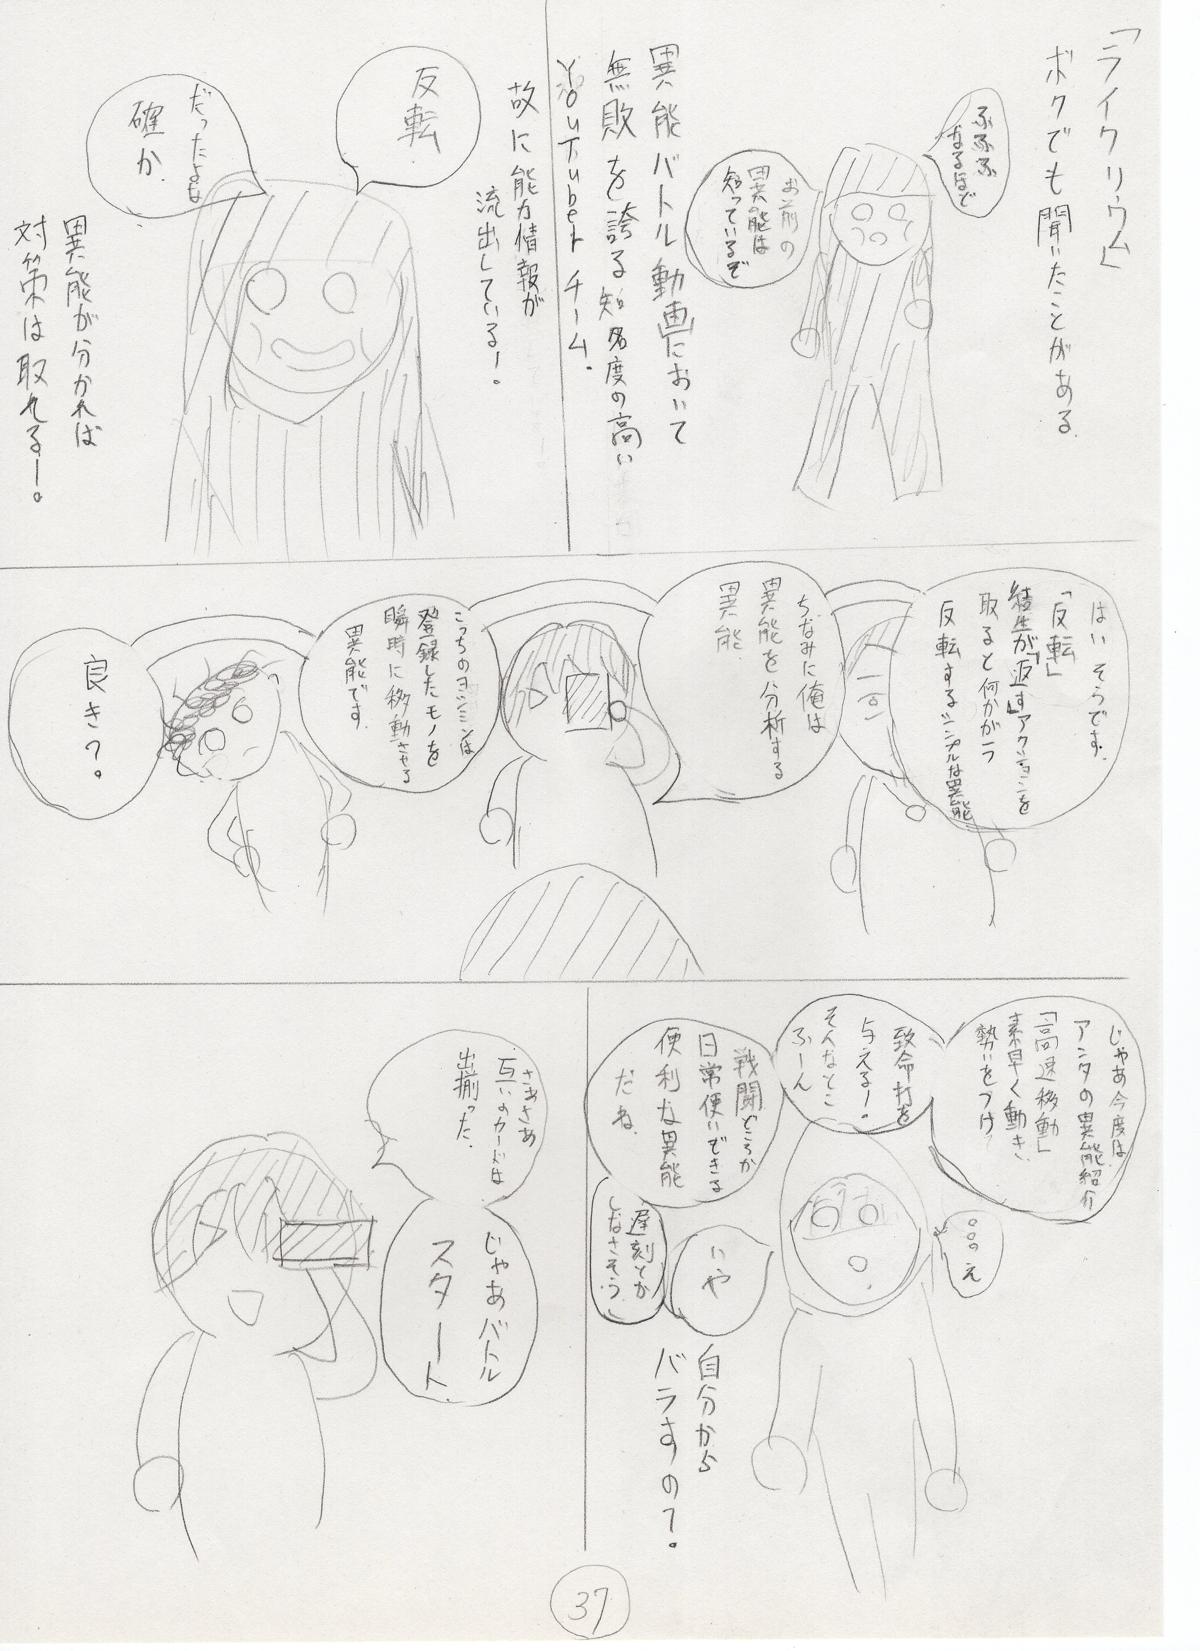 「ライクリウム」
ボクでも聞いたことがある
ふふふ
なるほど
お前の
異能は
知っているぞ
異能バトル動画において
無敗を誇る知名度の高い
YouTuberチーム.
故に能力情報が
流出しているー。
反転
だったよな
確か.
異能が分かれば
対策は取れるー。
はい そうです.
「反転」
結生が「返す」アクションを
取ると何かがうら
反転するシンプルな異能
ちなみに俺は
異能を分析する
異能.
こっちのヨシミンは
登録したモノを
瞬時に移動させる
異能です.
良き?。
じゃあ今度は
アンタの異能紹介
「高速移動」
素早く動き、
勢いをつけ
致命打を
与えるー。
そんなとこ
ふーん
戦闘どころか
日常使いできる
便利な異能
だね.
遅刻とか
しなさそう.
。。。え
いや
自分から
バラすの?。
さあさあ
互いのカードは
出揃った.
じゃあバトル
スタート.
37